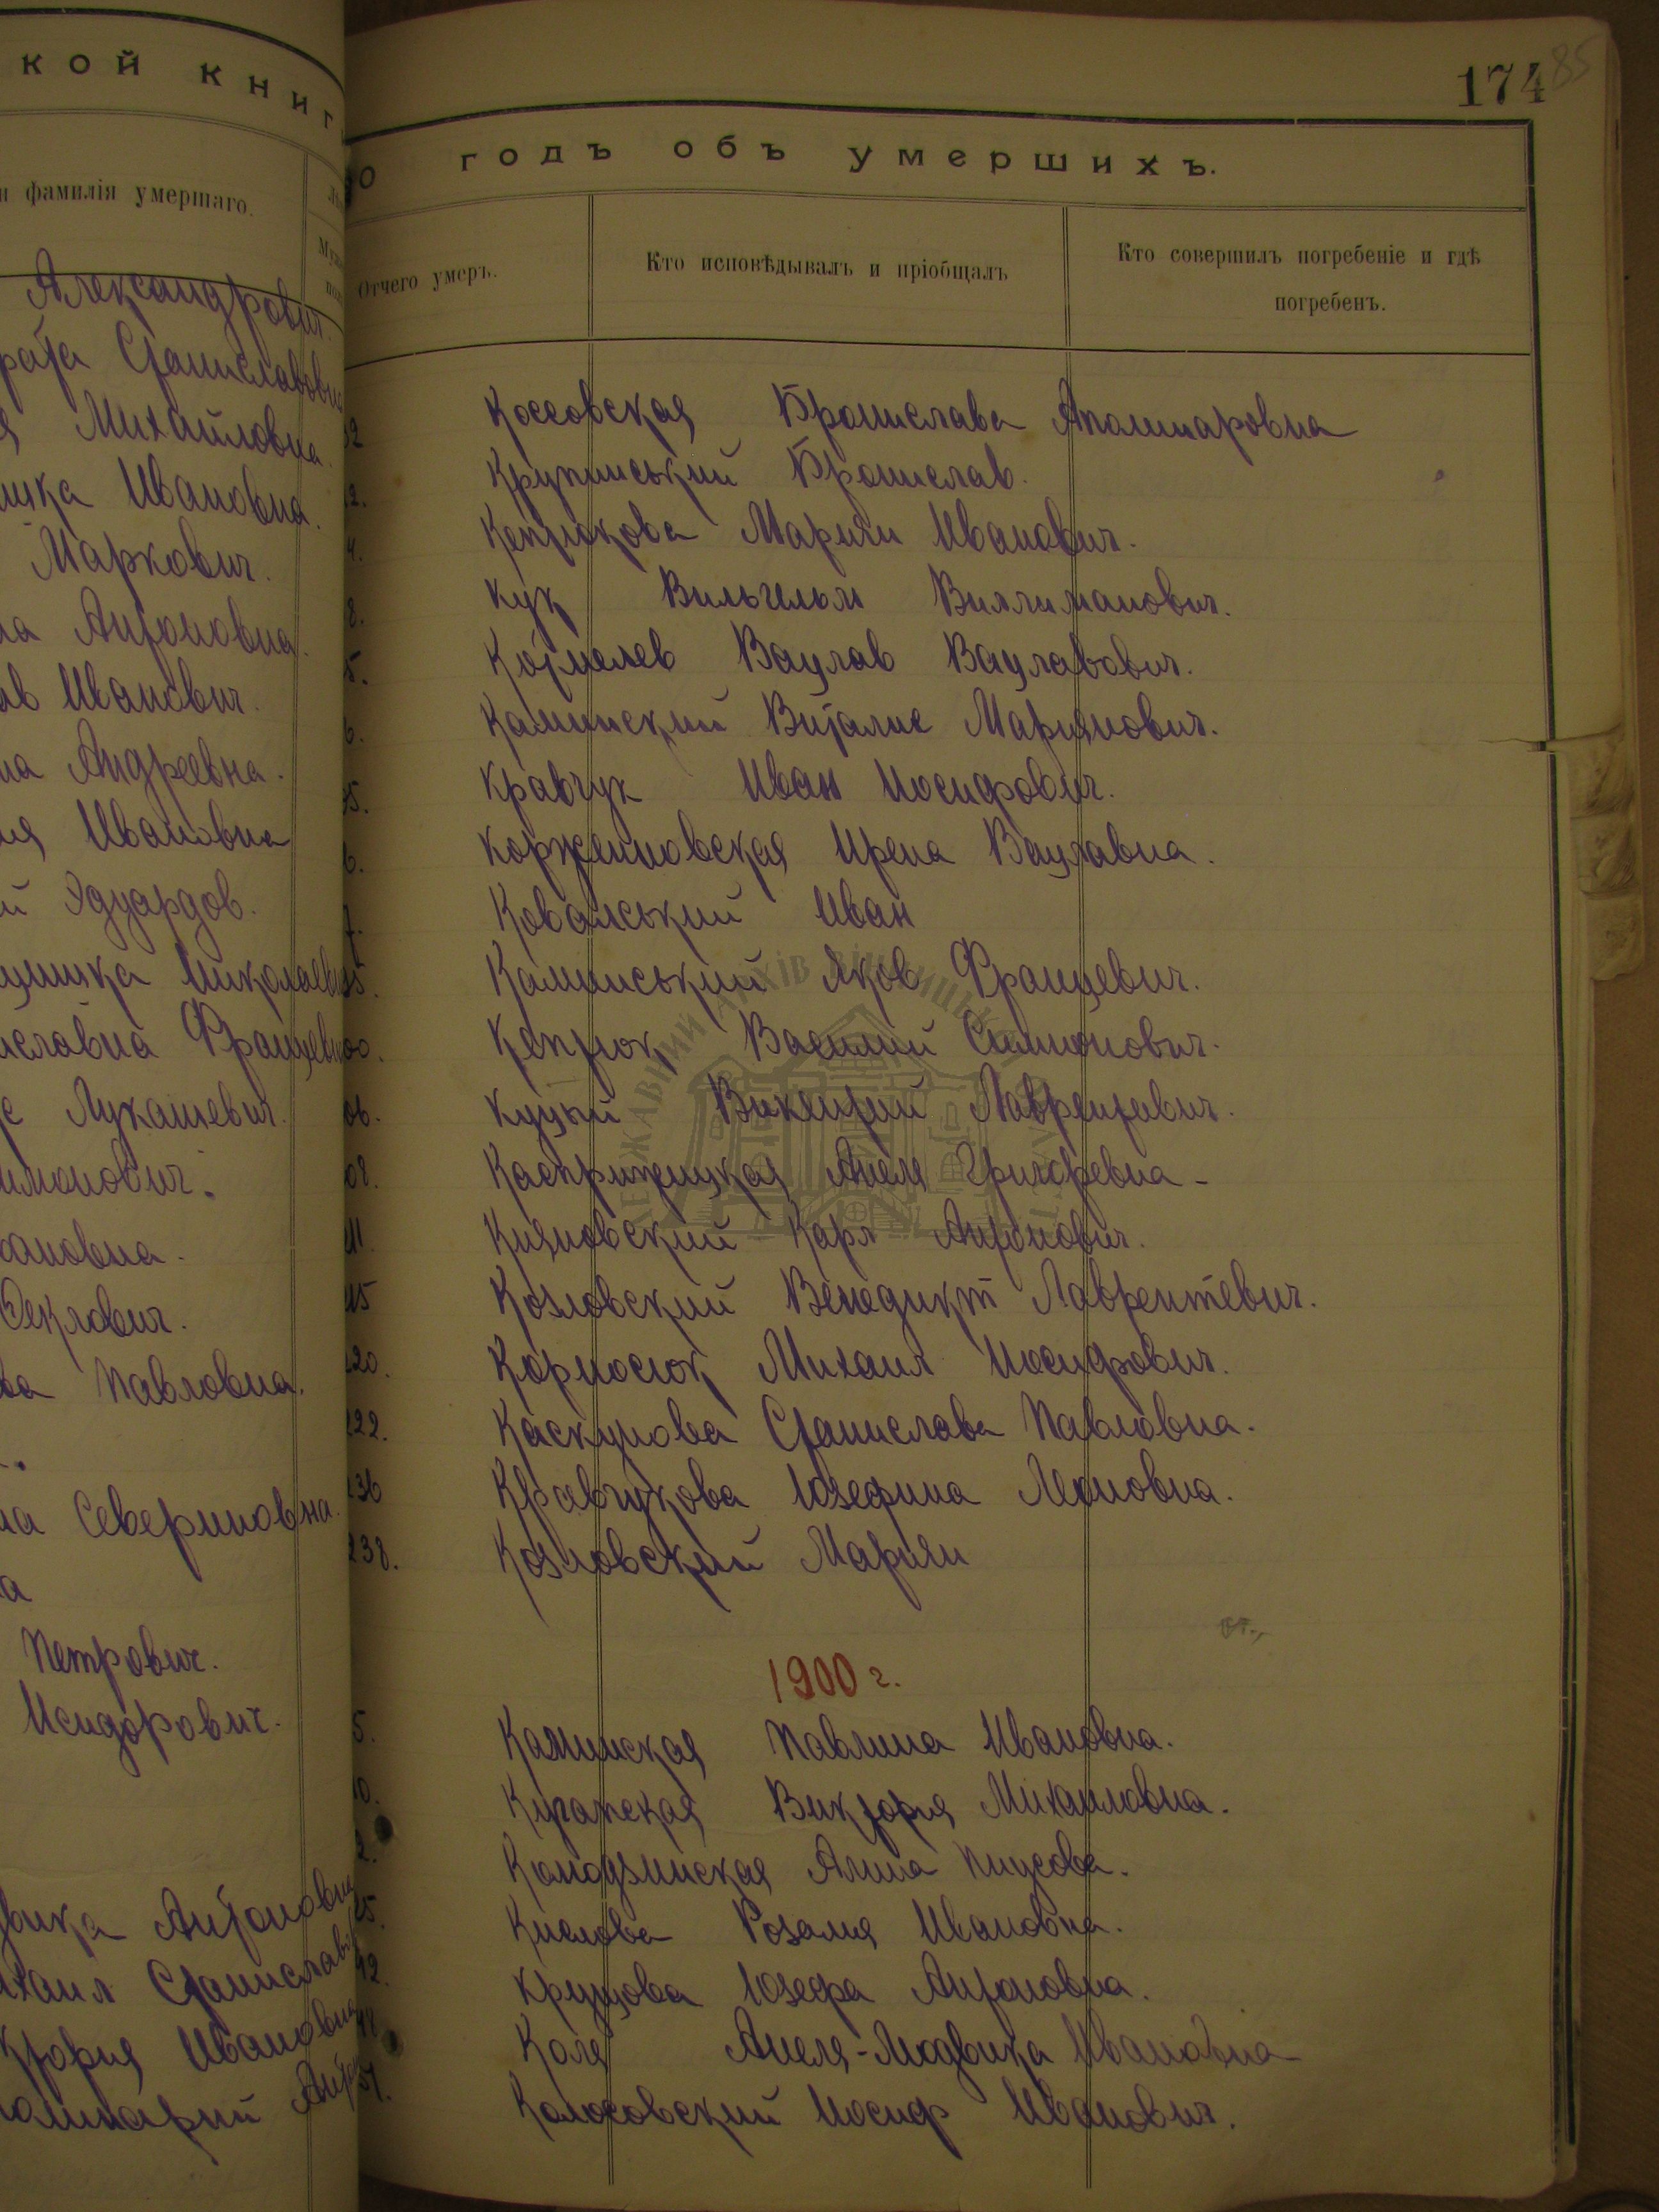 кой книг
и фамилія умершаго.
Александрович.
рата Станиславовна
Михайловна.
Ивановна.
Маркович.
на Антоновна.
ав Иванович.
на Андреевна.
ия Ивановна
й Эдуардов.
Николаевна
иславна Францевна
Лукашевич.
имонович.
кановна.
Феклович.
ва Павловна.
на Севериновна.
Петрович.
Исидорович.
двика Антоновна
ихаил Станиславов
ктория Ивановна
174 85
годъ объ умершихъ.
Отчего умеръ.
Кто исповѣдывалъ и пріобщалъ
Кто совершилъ погребеніе и гдѣ погребенъ.
Коссовская Бронислава Аполинаровна
12. Крупинський Бронислав.
4. Кепрюкова Мариян Иванович.
8. Кук Вильгельм Виллиманович.
5. Вацлав Вацлавович.
6. Каминский Виталис Мариянович.
35. Кравчук Иван Иосифович.
6. Корженновская Ирена Вацлавна.
7. Ковальський Иван
Каминський Яков Францевич.
00. Кепрюк Василий Симионович.
06. Куцый Викентий Лаврентевич.
08. Касприжицкая Анеля Григоревна-
11. Кияновский Карл Антонович.
15 Козловский Венедикт Лаврентевич.
120. Корносюк Михаил Иосифович.
122. Каскунова Станислава Павловна.
136 Кравчукова Юзефина Леоновна.
138. Козловский Мариян
1900 г.
5. Каминская Павлина Ивановна.
10. Виктория Михаиловна.
2. Колодзинская Алина
25. Кислова Розалия Ивановна.
42. Круцова Юзефа Антоновна.
Коля Анеля-Людвика Ивановна
57. Колосовский Иосиф Иванович.
ДЕРЖАВНИЙ АРХІВ ВІННИЦЬКОЇ